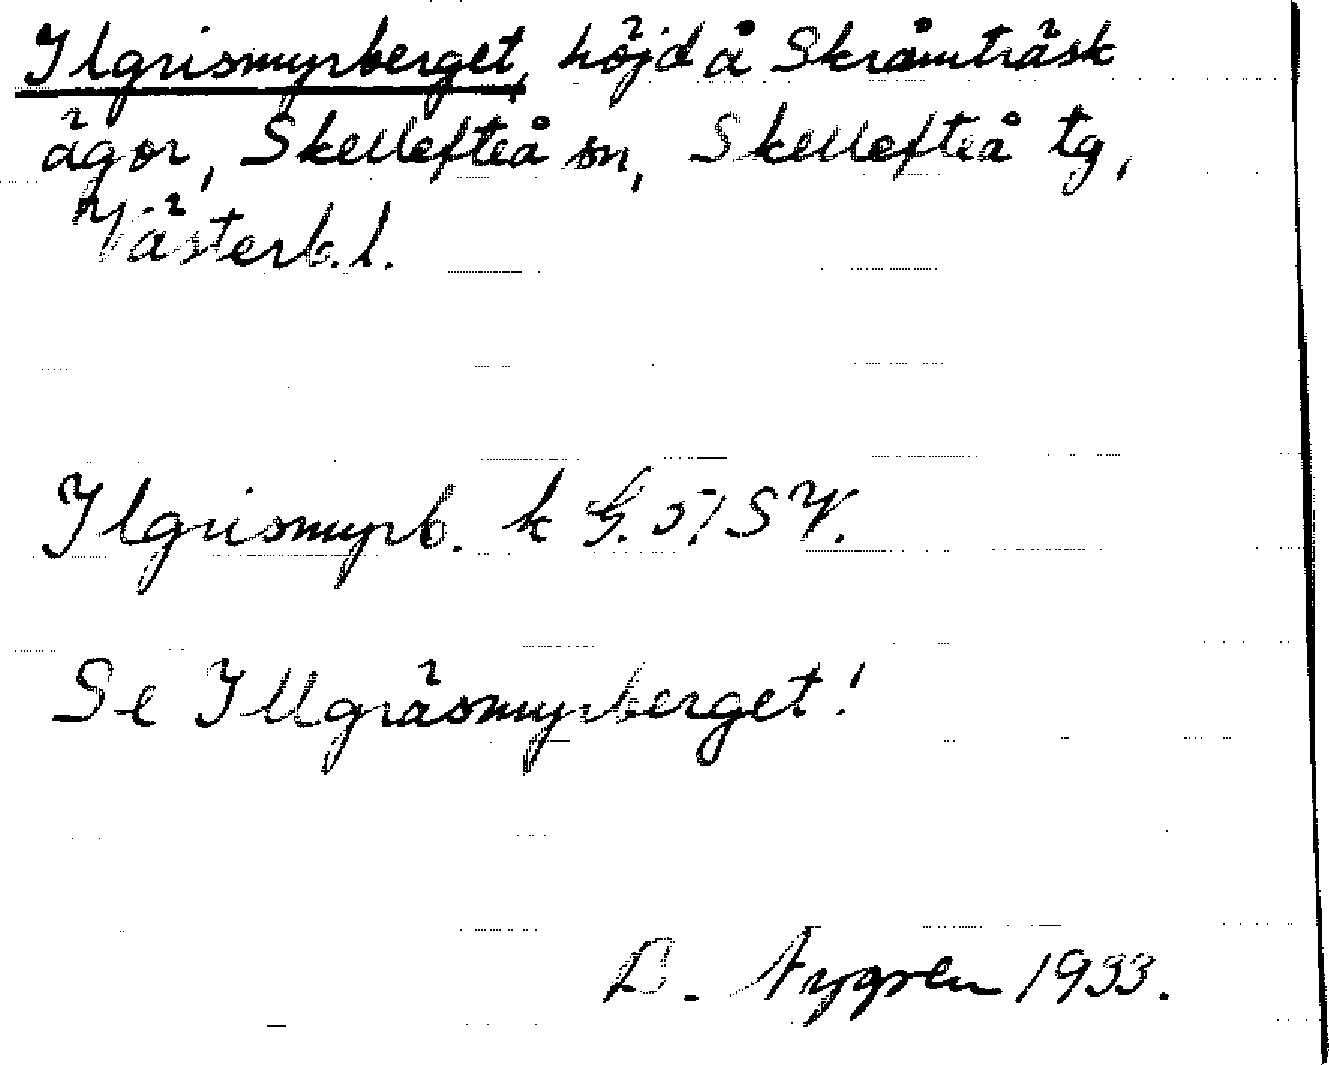 Ilgrismyrberget, höjd å Skråmträsk
ägor, Skellefteå sn, Skellefteå tg,
Västerb. l.
Ilgrismyrb. k G. 57 S V.
Se Illgräsmyrberget!
Nygren 1933.